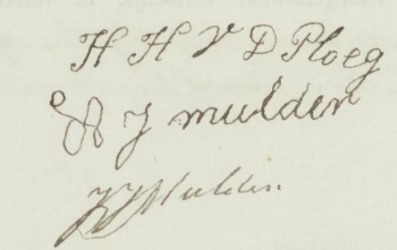 H H V D Ploeg
J mulder
Mulder